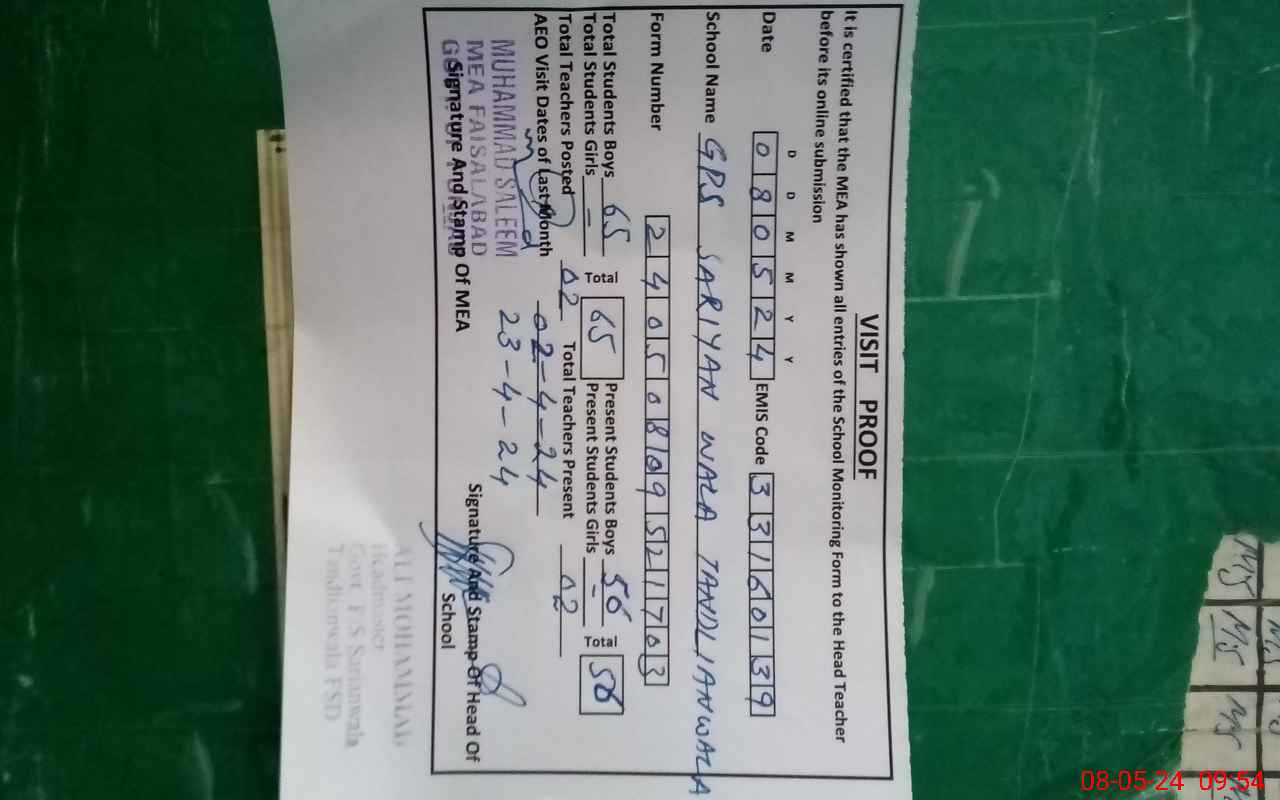 VISIT PROOF
It is certified that the MEA has shown all entries of the School Monitoring Form to the Head Teacher
before its online submission
D D M M Y Y
Date 080524 EMIS Code 33160139
School Name GPS SARIYAN WALA TANDLIANWALA
Form Number 24050809521703
Total Students Boys 65 Total 65 Present Students Boys 56 Total 56
Total Students Girls - Present Students Girls -
Total Teachers Posted 02 Total Teachers Present 02
AEO Visit Dates of Last Month 02-4-24
23-4-24
MUHAMMAD SALEEM
MEA FAISALABAD
Signature And Stamp Of MEA
Signature And Stamp Of Head Of
School
ALI MOHAMMAD
Headmaster
Govt. P/S Sarianwala
Tandlianwala FSD
MS
MS MS
08-05-24 09:54